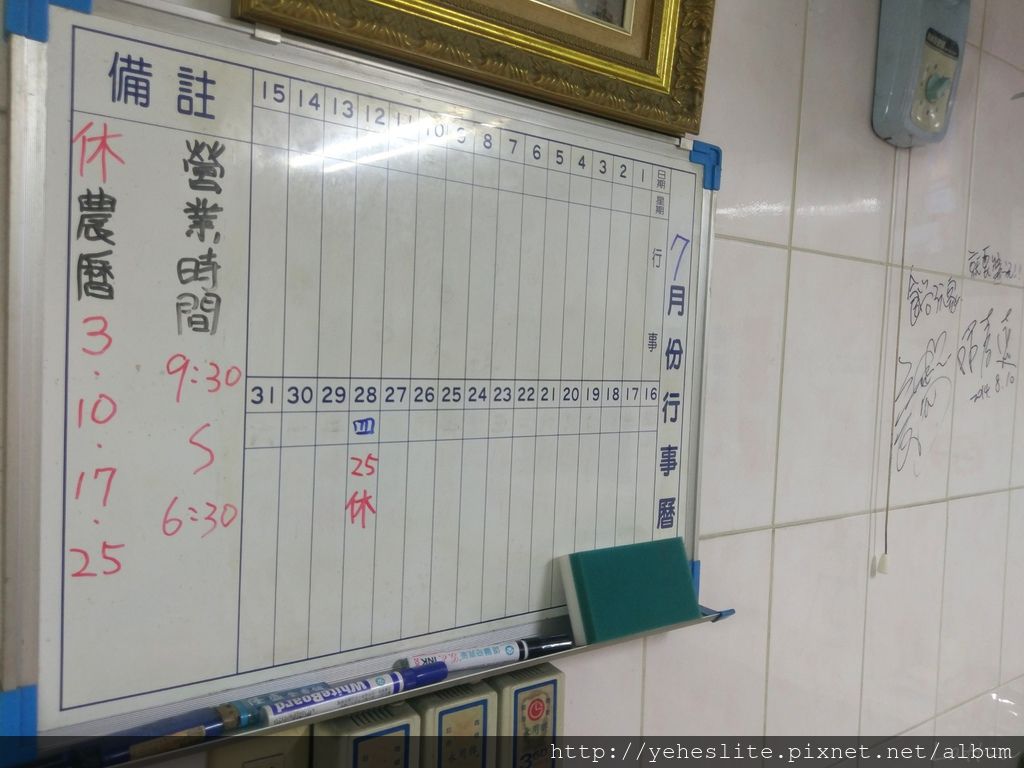 7月份行事曆
日期
星期
行事
1 2 3 4 5 6 7 8 9 10 11 12 13 14 15
16 17 18 19 20 21 22 23 24 25 26 27 28 29 30 31
四
25
休
備註
營業時間
9:30
S
6:30
休農曆3.10.17.25
WhiteBoard
2014.8.10
http://yeheslite.pixnet.net/album